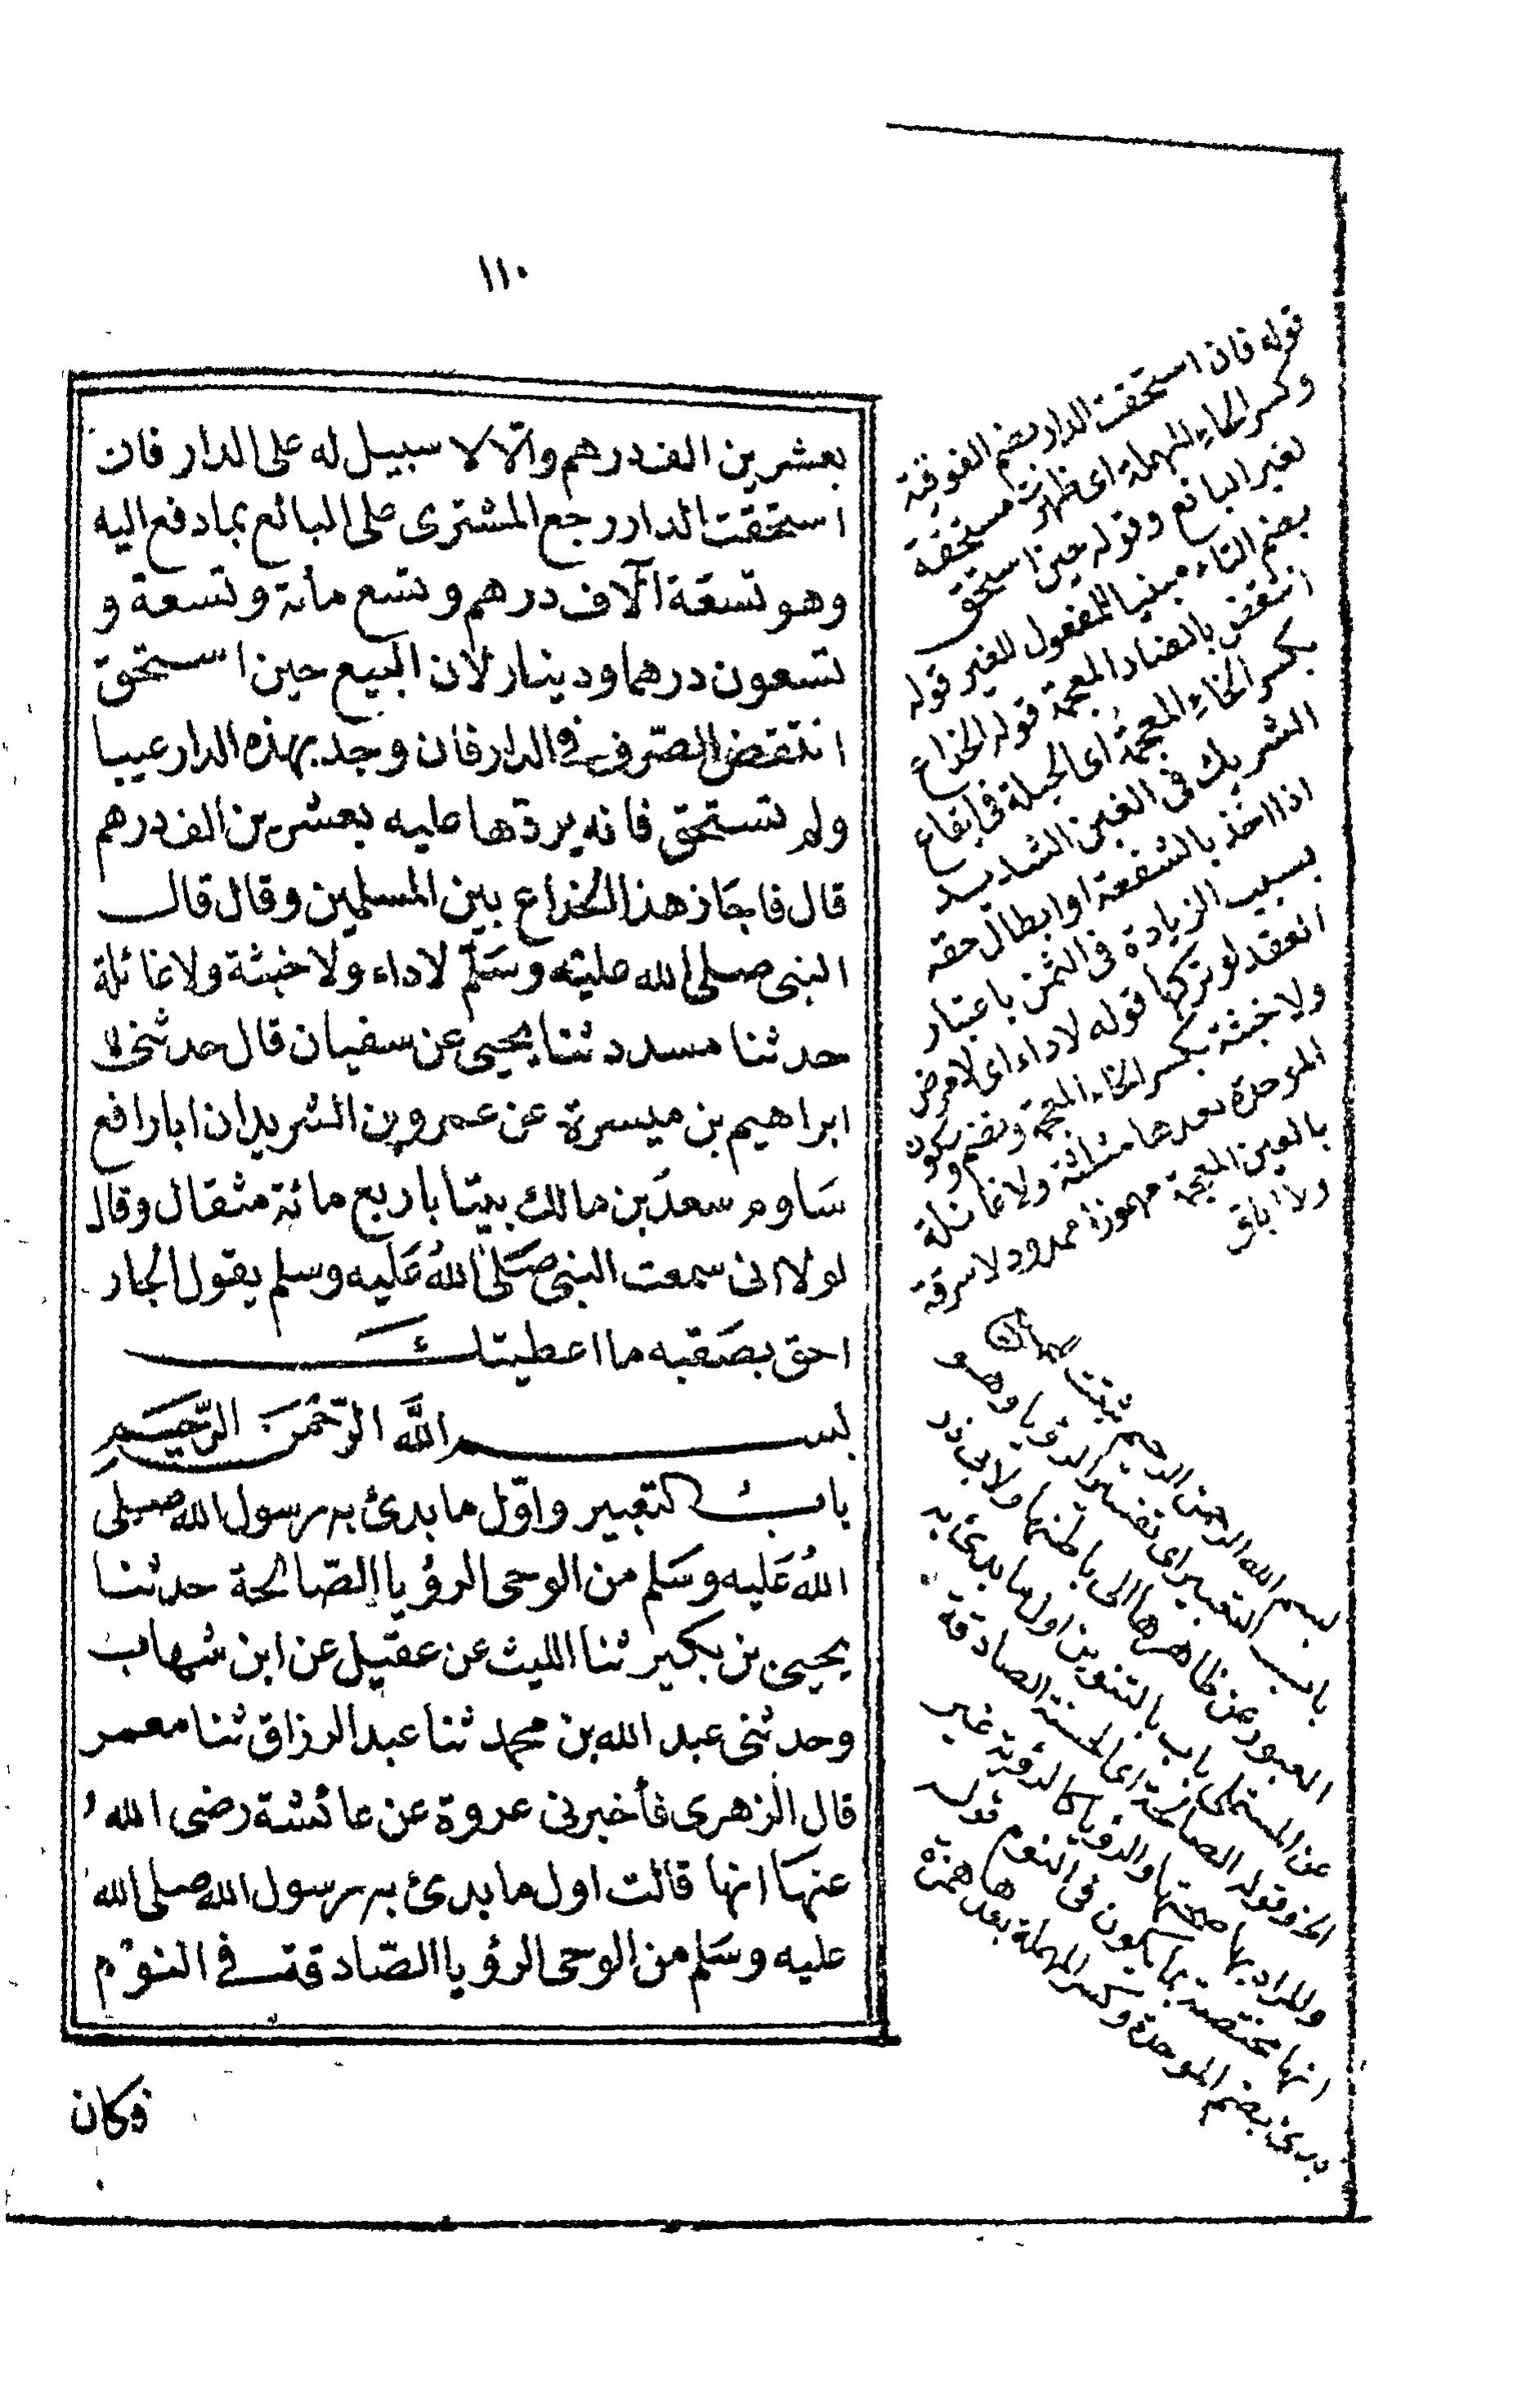 ١١٠
بعشرين الف درهم والا لا سبيل له على الدار فان
استحقت الدار رجع المشترى على البائع بما دفع اليه
وهو تسعة آلاف درهم وتسع مائة وتسعة و
تسعون درهما ودينار لان البيع حين استحق
انتقض الصرف فى الدار فان وجد بهذه الدار عيبا
ولم تستحق فانه يردها عليه بعشرين الف درهم
قال فاجاز هذا الخداع بين المسلمين وقال قال
النبى صلى الله عليه وسلم لا داء ولا خبثة ولا غائلة
حدثنا مسدد ثنا يحيى عن سفيان قال حدثنى
ابراهيم بن ميسرة عن عمرو بن الشريد ان ابا رافع
ساوم سعد بن مالك بيتا باربع مائة مثقال وقال
لولا انى سمعت النبى صلى الله عليه وسلم يقول الجار
احق بصقبه ما اعطيتك
بسم الله الرحمن الرحيم
باب التعبير واول ما بدئ به رسول الله صلى
الله عليه وسلم من الوحى الرؤيا الصالحة حدثنا
يحيى بن بكير ثنا الليث عن عقيل عن ابن شهاب
وحدثنى عبد الله بن محمد ثنا عبد الرزاق ثنا معمر
قال الزهرى فأخبرنى عروة عن عائشة رضى الله
عنها انها قالت اول ما بدئ به رسول الله صلى الله
عليه وسلم من الوحى الرؤيا الصادقة فى النوم
فكان
قوله فان استحقت الدار بضم الفوقية
وكسر الحاء المهملة اى ظهرت مستحقة
لغير البائع وقوله حين استحق
بضم التاء مبنيا للمفعول للغير قوله
انتقض بالضاد المعجمة قوله الخداع
بكسر الخاء المعجمة اى الحيلة فى ايقاع
الشريك فى الغبن الشديد
اذا اخذ بالشفعة او ابطال حقه
بسبب الزيادة فى الثمن باعتبار
العقد لو تركها قوله لا داء اى لا مرض
ولا خبثة بكسر الخاء المعجمة وبضم وسكون
الموحدة بعدها مثلثة ولا غائلة
بالغين المعجمة مهموزا ممدود لا سرقة
ولا اباق
بسم الله الرحمن الرحيم ثبتت
باب التعبير اى تفسير الرؤيا وهو
العبور من ظاهرها الى باطنها ولابى ذر
عن المستملى باب بالتنوين اول ما بدئ به
الخ وقوله الصالحة اى الحسنة الصادقة
والمراد بها صحتها والرؤيا كالرؤية غير
انها مختصة بما يكون فى النوم قوله
بدئ بضم الموحدة وكسر المهملة بعدها همزة